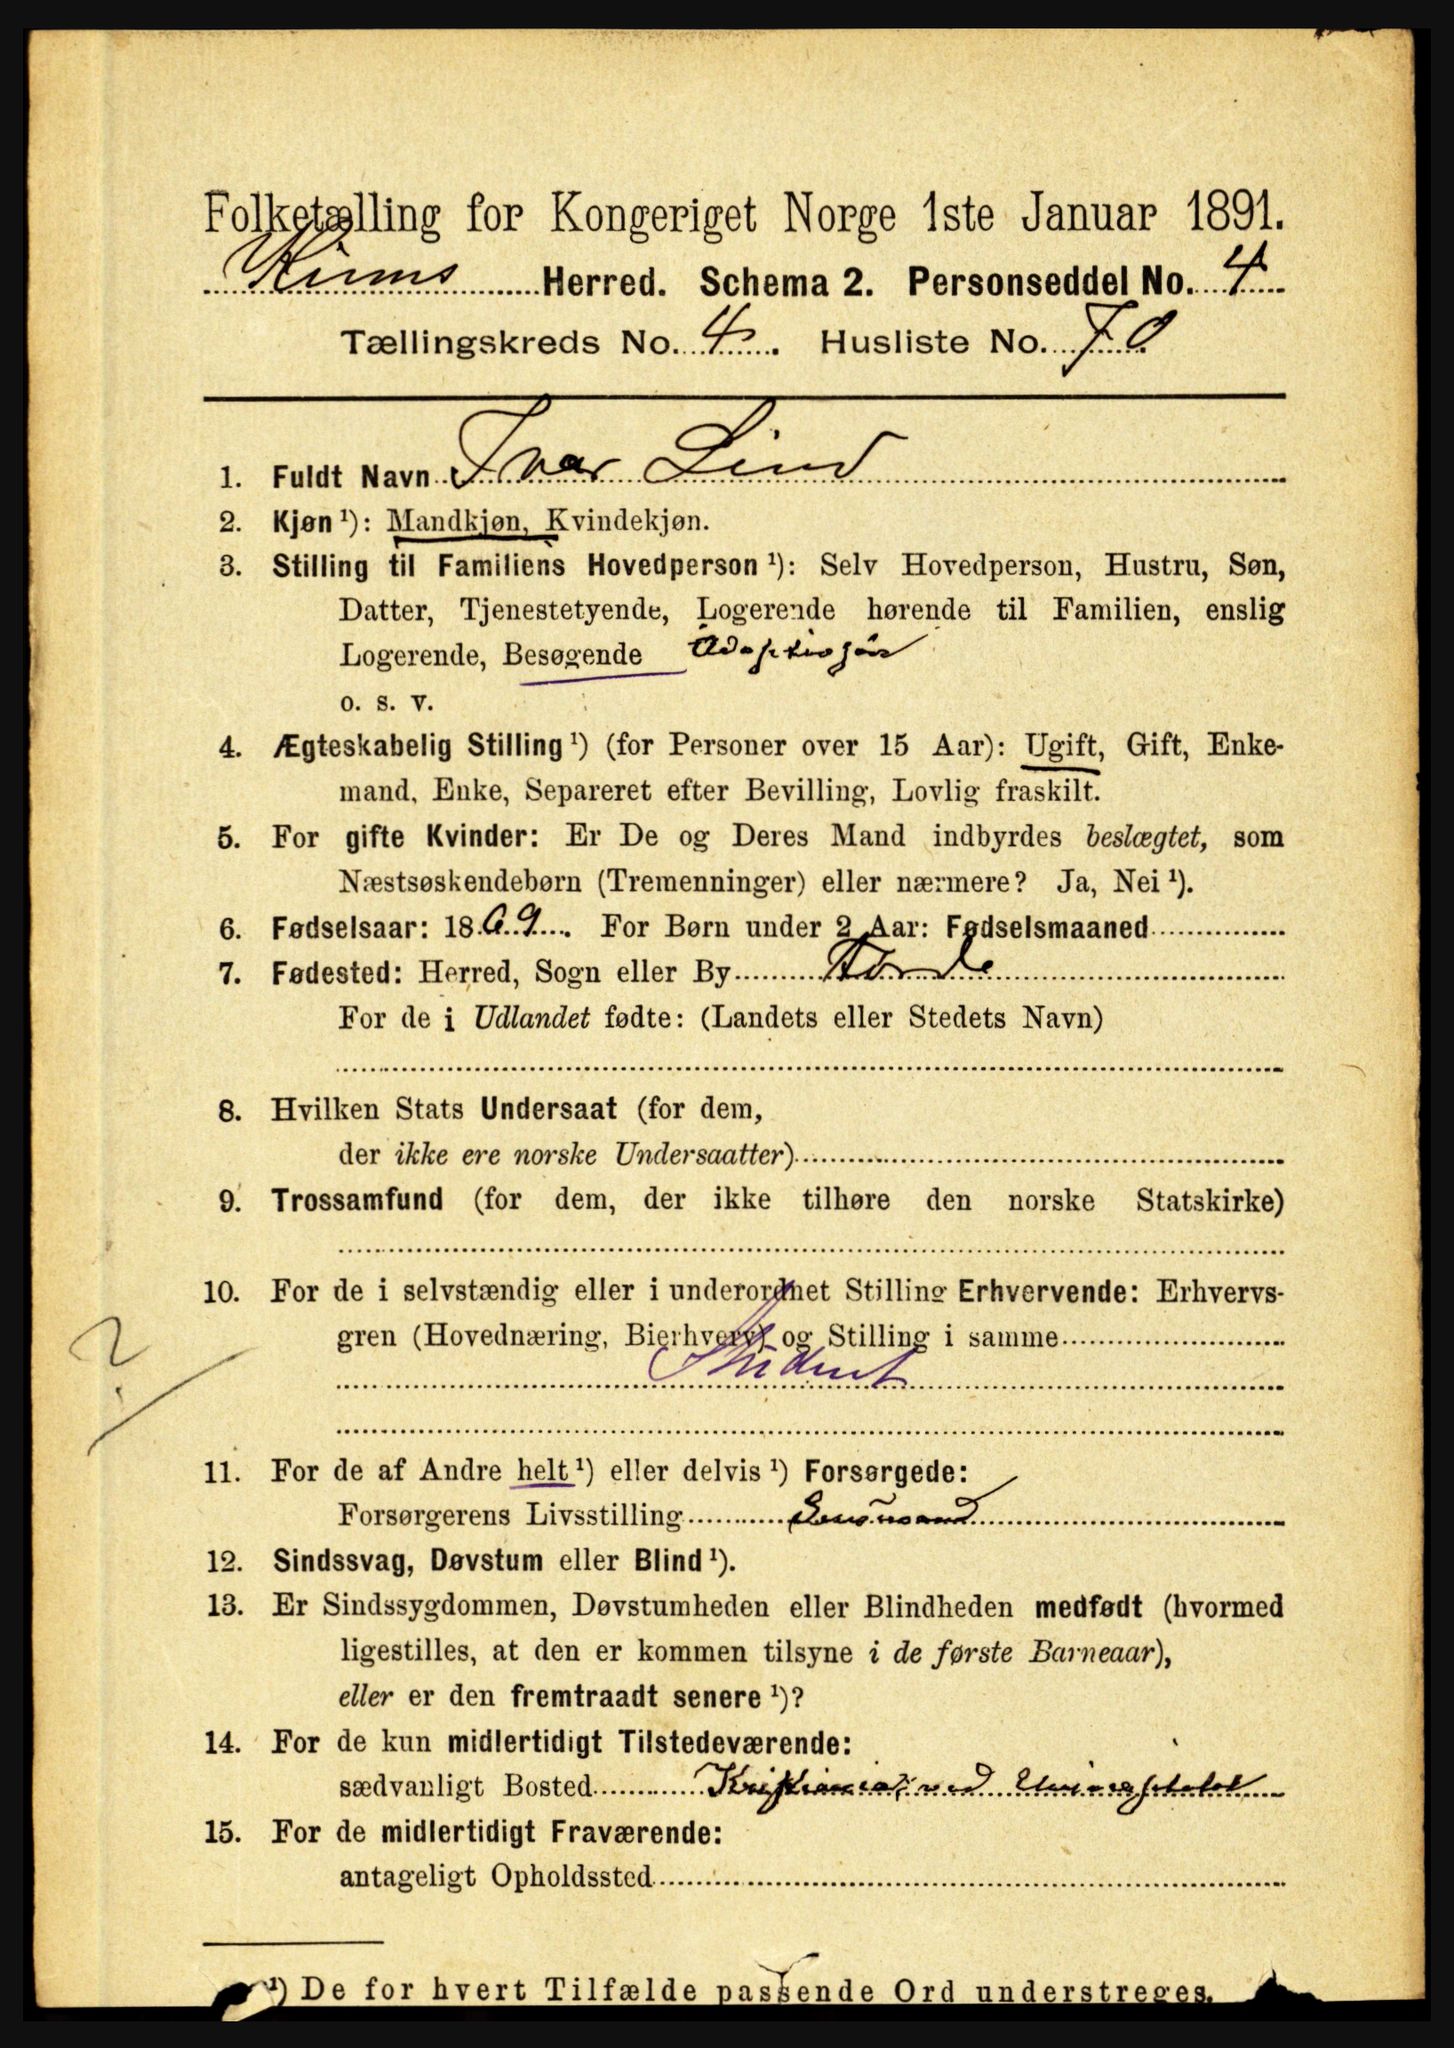 Folketælling for Kongeriget Norge 1ste Januar 1891.
Kinns Herred. Schema 2. Personseddel No. 4
Tællingskreds No. 4. Husliste No. 70
1. Fuldt Navn Ivar Lind
2. Kjøn ¹): Mandkjøn, Kvindekjøn.
3. Stilling til Familiens Hovedperson ¹): Selv Hovedperson, Hustru, Søn,
Datter, Tjenestetyende, Logerende hørende til Familien, enslig
Logerende, Besøgende
o. s. v.
4. Ægteskabelig Stilling ¹) (for Personer over 15 Aar): Ugift, Gift, Enke-
mand, Enke, Separeret efter Bevilling, Lovlig fraskilt.
5. For gifte Kvinder: Er De og Deres Mand indbyrdes beslægtet, som
Næstsøskendebørn (Tremenninger) eller nærmere? Ja, Nei ¹).
6. Fødselsaar: 1869. For Børn under 2 Aar: Fødselsmaaned
7. Fødested: Herred, Sogn eller By Førde
For de i Udlandet fødte: (Landets eller Stedets Navn)
8. Hvilken Stats Undersaat (for dem,
der ikke ere norske Undersaatter)
9. Trossamfund (for dem, der ikke tilhøre den norske Statskirke)
10. For de i selvstændig eller i underordnet Stilling Erhvervende: Erhvervs-
gren (Hovednæring, Bierhverv) og Stilling i samme
Student
?
11. For de af Andre helt ¹) eller delvis ¹) Forsørgede:
Forsørgerens Livsstilling Lensmand
12. Sindssvag, Døvstum eller Blind ¹).
13. Er Sindssygdommen, Døvstumheden eller Blindheden medfødt (hvormed
ligestilles, at den er kommen tilsyne i de første Barneaar),
eller er den fremtraadt senere ¹)?
14. For de kun midlertidigt Tilstedeværende:
sædvanligt Bosted Kristiania, ved Universitetet
15. For de midlertidigt Fraværende:
antageligt Opholdssted
¹) De for hvert Tilfælde passende Ord understreges.